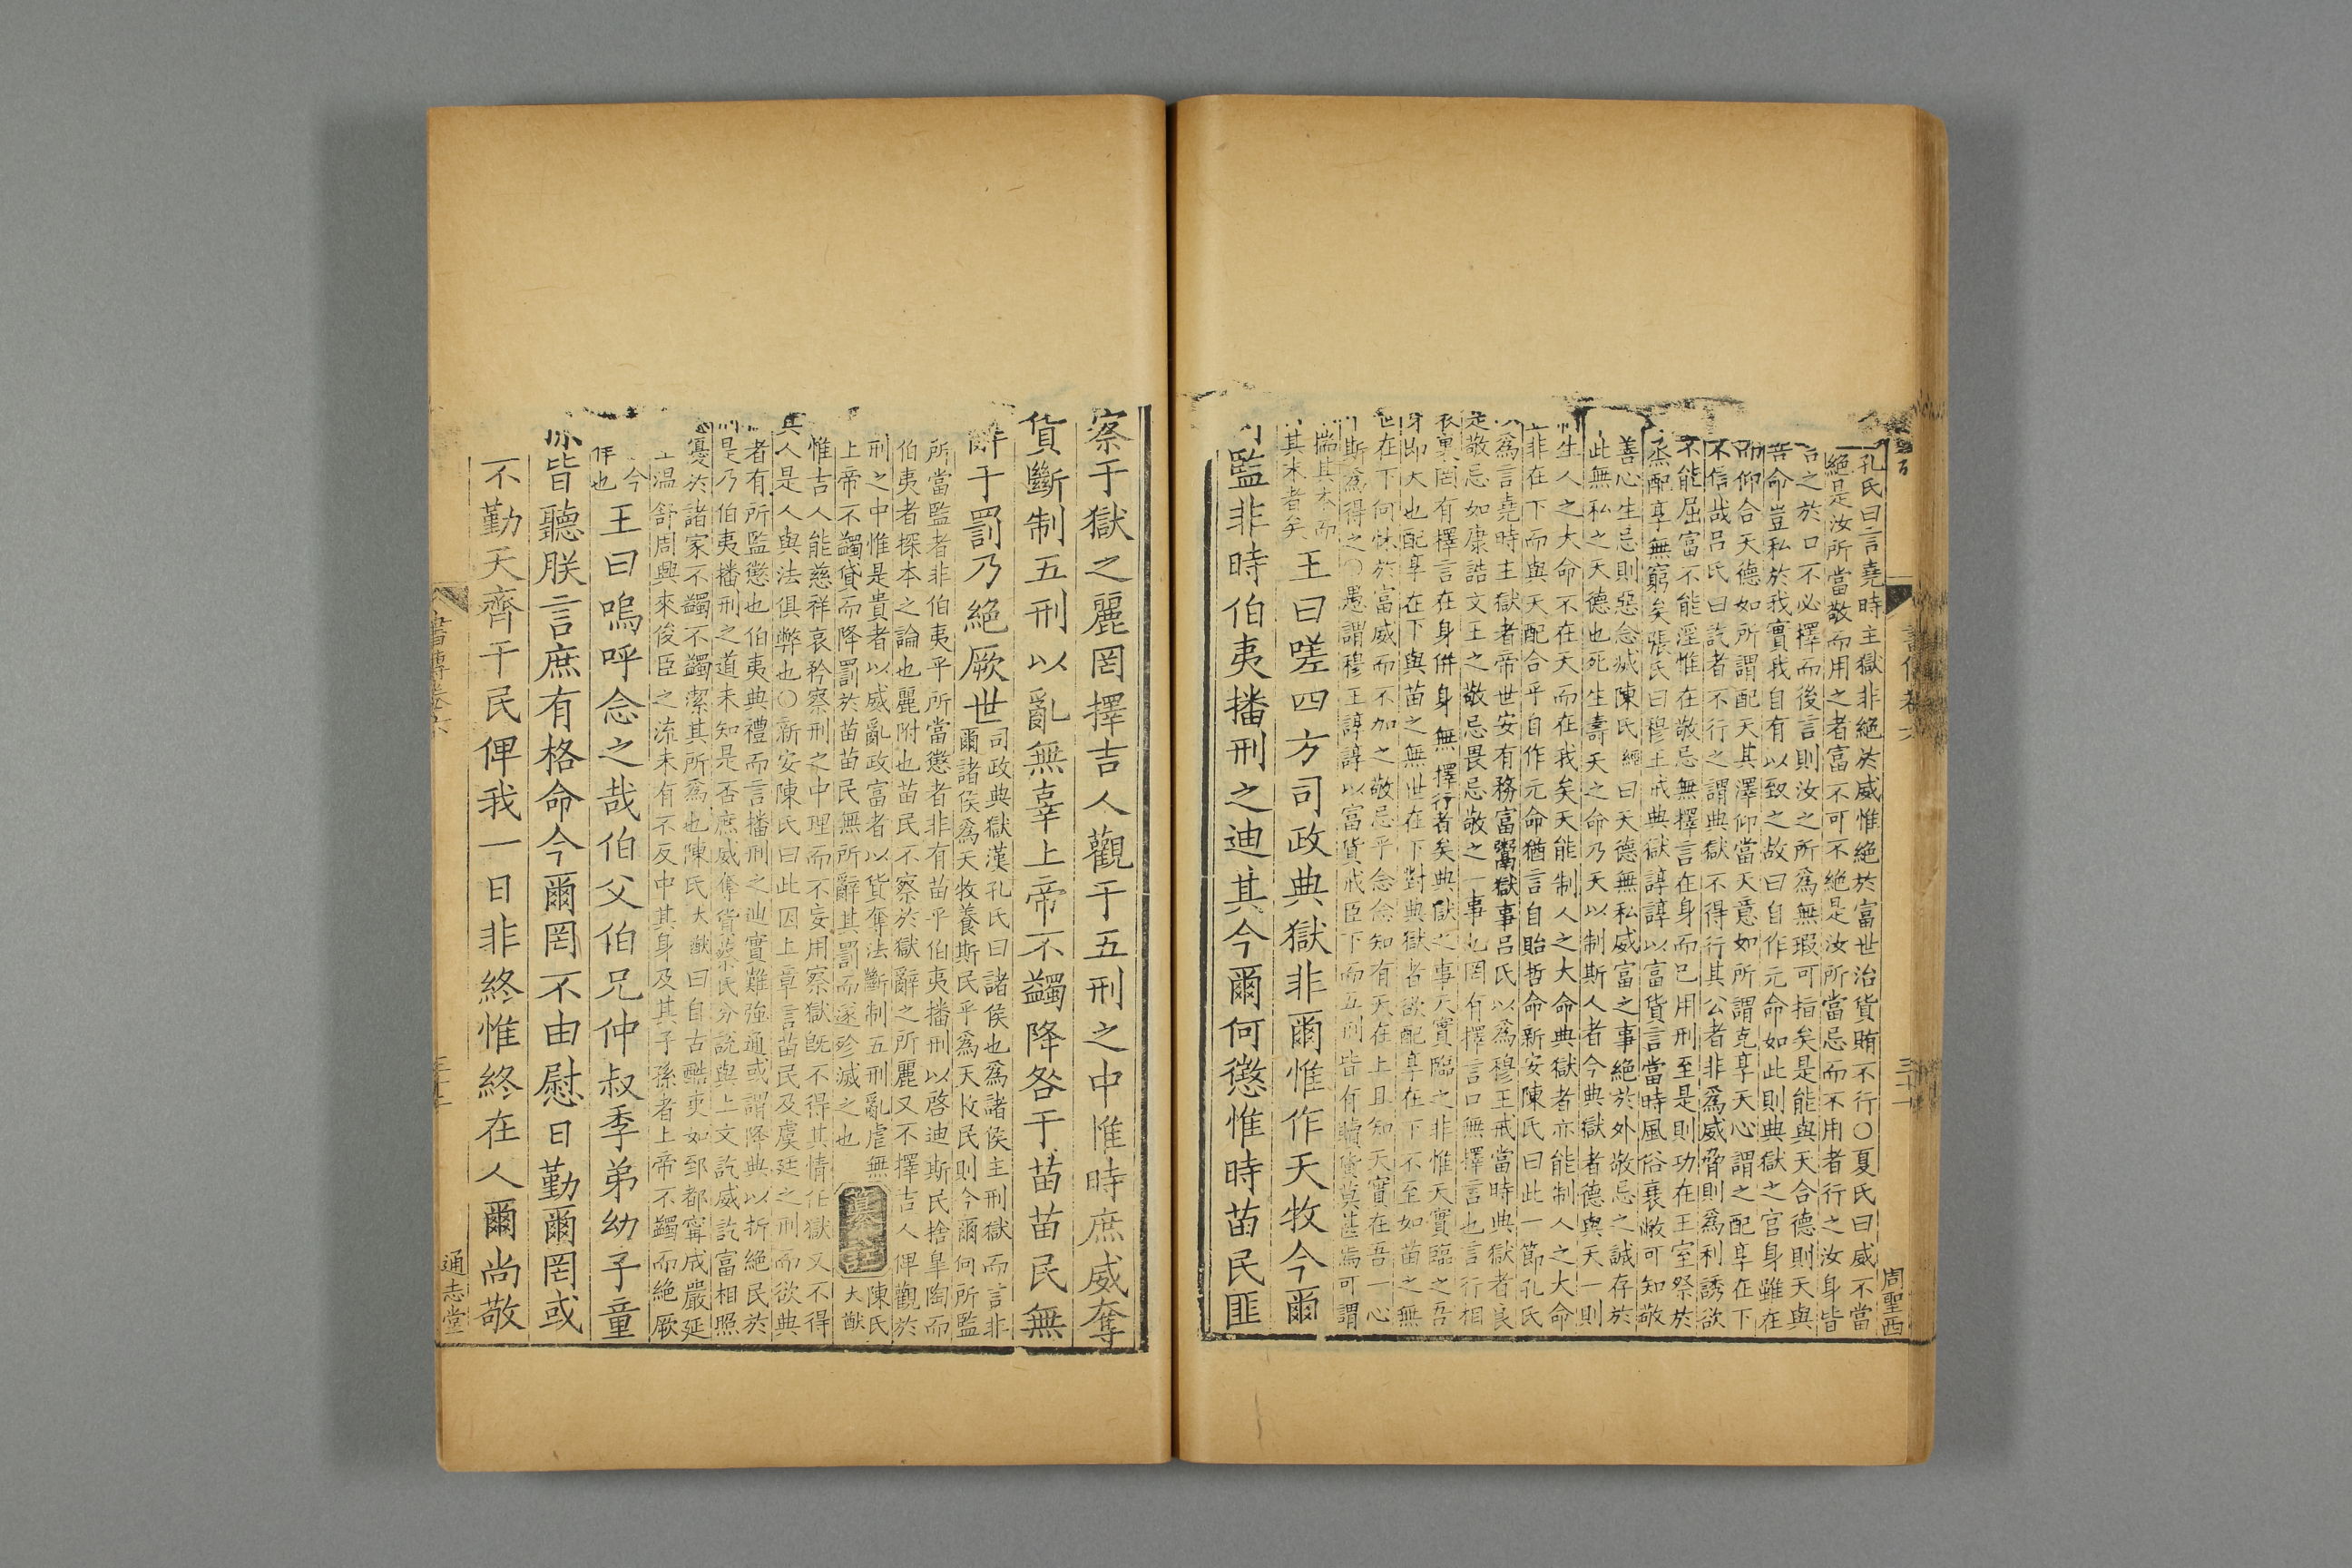 孔氏曰言堯時主獄非絕於威惟絕於富世治貨賄不行○夏氏曰威不當
絕是汝所當敬而用之者富不可不絕是汝所當忌而不用者行之汝身皆
之於口不必擇而後言則汝之所爲無瑕可指矣是能與天合德則天與
命豈私於我實我自有以致之故曰自作元命如此則典獄之官身雖在
仰合天德如所謂配天其澤仰當天意如所謂克享天心謂之配享在下
不信哉呂氏曰訖者不行之謂典獄不得行其公者非爲威脅則爲利誘欲
不能屈富不能淫惟在敬忌無擇言在身而已用刑至是則功在王室祭於
烝配享無窮矣張氏曰穆王戒典獄諄諄以富貨言當時風俗衰敝可知敬
善心生忌則惡念滅陳氏經曰天德無私威富之事絕於外敬忌之誠存於
此無私之天德也死生壽夭之命乃天以制斯人者今典獄者德與天一則
生人之大命不在天而在我矣天能制人之大命典獄者亦能制人之大命
非在下而與天配合乎自作元命猶言自貽哲命新安陳氏曰此一節孔氏
爲言堯時主獄者帝世安有務富鬻獄事呂氏以爲穆王戒當時典獄者良
是敬忌如康誥文王之敬忌畏忌敬之一事也罔有擇言口無擇言也言行相
表裏罔有擇言在身倂身無擇行者矣典獄之事天實臨之非惟天實臨之吾
身即天也配享在下與苗之無世在下對典獄者欲配享在下不至如苗之無
世在下何怵於富威而不加之敬忌乎念念知有天在上且知天實在吾一心
斯爲得之○愚謂穆王諄諄以富貨戒臣下而五刑皆有贖貨莫甚焉可謂
揣其本而
其末者矣
王曰嗟四方司政典獄非爾惟作天牧今爾
監非時伯夷播刑之迪其今爾何懲惟時苗民匪
周聖西
察于獄之麗罔擇吉人觀于五刑之中惟時庶威奪
貨斷制五刑以亂無辜上帝不蠲降咎于苗苗民無
辭于罰乃絕厥世
司政典獄漢孔氏曰諸侯也爲諸侯主刑獄而言非
爾諸侯爲天牧養斯民乎爲天牧民則今爾何所監
所當監者非伯夷乎所當懲者非有苗乎伯夷播刑以啓迪斯民捨皋陶而
伯夷者探本之論也麗附也苗民不察於獄辭之所麗又不擇吉人俾觀於
刑之中惟是貴者以威亂政富者以貨奪法斷制五刑亂虐無
上帝不蠲貸而降罰於苗苗民無所辭其罰而遂殄滅之也
纂註
陳氏
大猷
惟吉人能慈祥哀矜察刑之中理而不妄用察獄旣不得其情任獄又不得
其人是人與法俱弊也○新安陳氏曰此因上章言苗民及虞廷之刑而欲典
者有所監懲也伯夷典禮而言播刑之迪實難強通或謂降典以折絕民於
是乃伯夷播刑之道未知是否庶威奪貨蔡氏分說與上文訖威訖富相照
憂於諸家不蠲不蠲潔其所爲也陳氏大猷曰自古酷吏如郅都甯成嚴延
溫舒周興來俊臣之流未有不反中其身及其子孫者上帝不蠲而絕厥
今
也
王曰嗚呼念之哉伯父伯兄仲叔季弟幼子童
孫皆聽朕言庶有格命今爾罔不由慰日勤爾罔或
不勤天齊于民俾我一日非終惟終在人爾尚敬
書傳卷六
通志堂